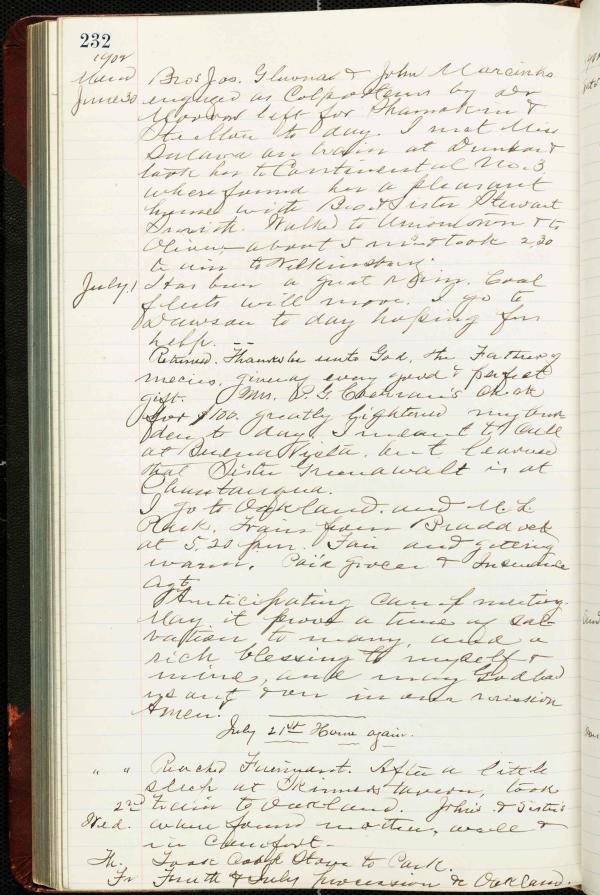 232
1902
June 30 Bros Jos. & John Marcinko
engaged as Colporteurs by
left for Shamokin &
Steelton to day. I met Miss
on train at Dunbar &
took her to Continental No. 3,
where found her a pleasant
home with Bro & Sister Stewart
Walked to Uniontown & to
Oliver about 5 m & took 2.30
train to Wilkinsburg.
July 1 Has been a great rising. Coal
fleets will move. I go to
Dawson to day hoping for
help. --
Returned. Thanks be unto God, the Father of
mercies, giving every good & perfect
gift. Mrs. P. G. Cochran's check
for $100. greatly lightened my bur
den to day. I meant to call
at Buena Vista, but learned
that Sister Greenawalt is at
Chautauqua.
I go to Oakland. and Mt. L.
Park. Train from Braddock
at 5.20 p.m. Fair and getting
warm. Paid grocer & Insurance
agt.
Anticipating camp meeting.
May it prove a time of sal-
vation to many, and a
rich blessing to myself &
mine, and may God
us out & on in our mission
Amen.
July 21st Home again.
" " Reached Fairmont. After a little
sleep at Skinners tavern, took
2nd train to Oakland. John's & Sister's
Wed. where found mother, well &
in comfort -
Th. Took Cook Stove to Park.
Fr Fourth of July procession @ Oakland.